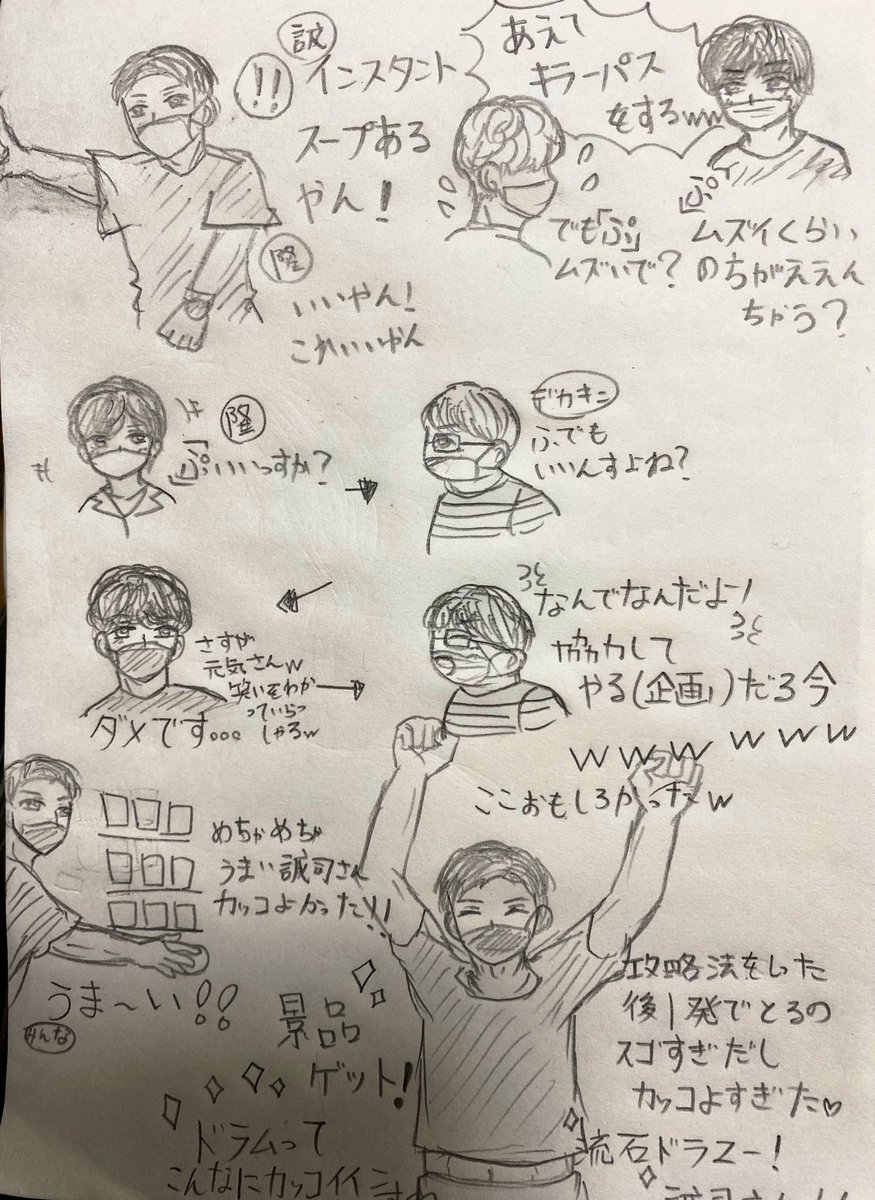 誠
!!
インスタント
スープある
やん!
隆
いいやん!
これいいやん
あえて
キラーパス
をするww
でも「ぷ」
ムズいで?
「ぷ」
ムズイくらい
のちがええん
ちゃう?
隆
「ぷ」いいっすか?
デカキン
ぷでも
いいんすよね?
さすが
元気さんw
笑いをわか
っていらっ
しゃるw
ダメです。。。
なんでなんだよー!
協力して
やる(企画)だろ今
wwwwww
ここおもしろかったw
めちゃめちゃ
うまい誠司さん
カッコよかった!!
うま〜い!!
みんな
景品
ゲット!
ドラムって
こんなにカッコイイ
攻略法をした
後1発でとるの
スゴすぎだし
カッコよすぎた♡
流石ドラマー!